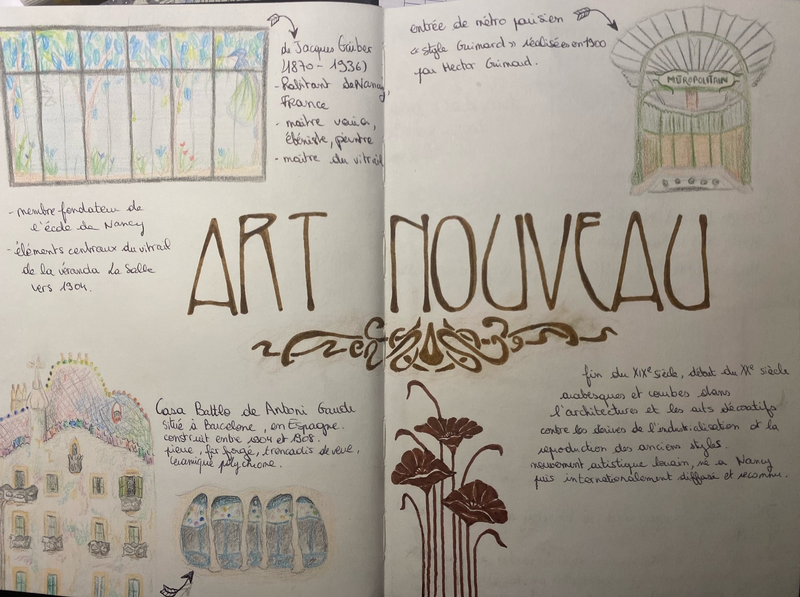 de Jacques Grüber
(1870 - 1936)
- Habitant de Nancy,
France
- maître verrier,
ébéniste, peintre
- maître du vitrail
- membre fondateur de
l'école de Nancy
- éléments centraux du vitrail
de la véranda La Salle
vers 1904.
entrée de métro parisien
« style Guimard » réalisées en 1900
par Hector Guimard.
MÉTROPOLITAIN
ART NOUVEAU
Casa Battlo de Antoni Gaudi
situé à Barcelone, en Espagne.
construit entre 1904 et 1906.
pierre, fer forgé, trencadis de verre,
céramique polychrome.
fin du XIXe siècle, début du XXe siècle
arabesques et courbes dans
l'architectures et les arts décoratifs
contre les dérives de l'industrialisation et la
reproduction des anciens styles.
mouvement artistique lorrain, né à Nancy
puis internationalement diffusé et reconnu.